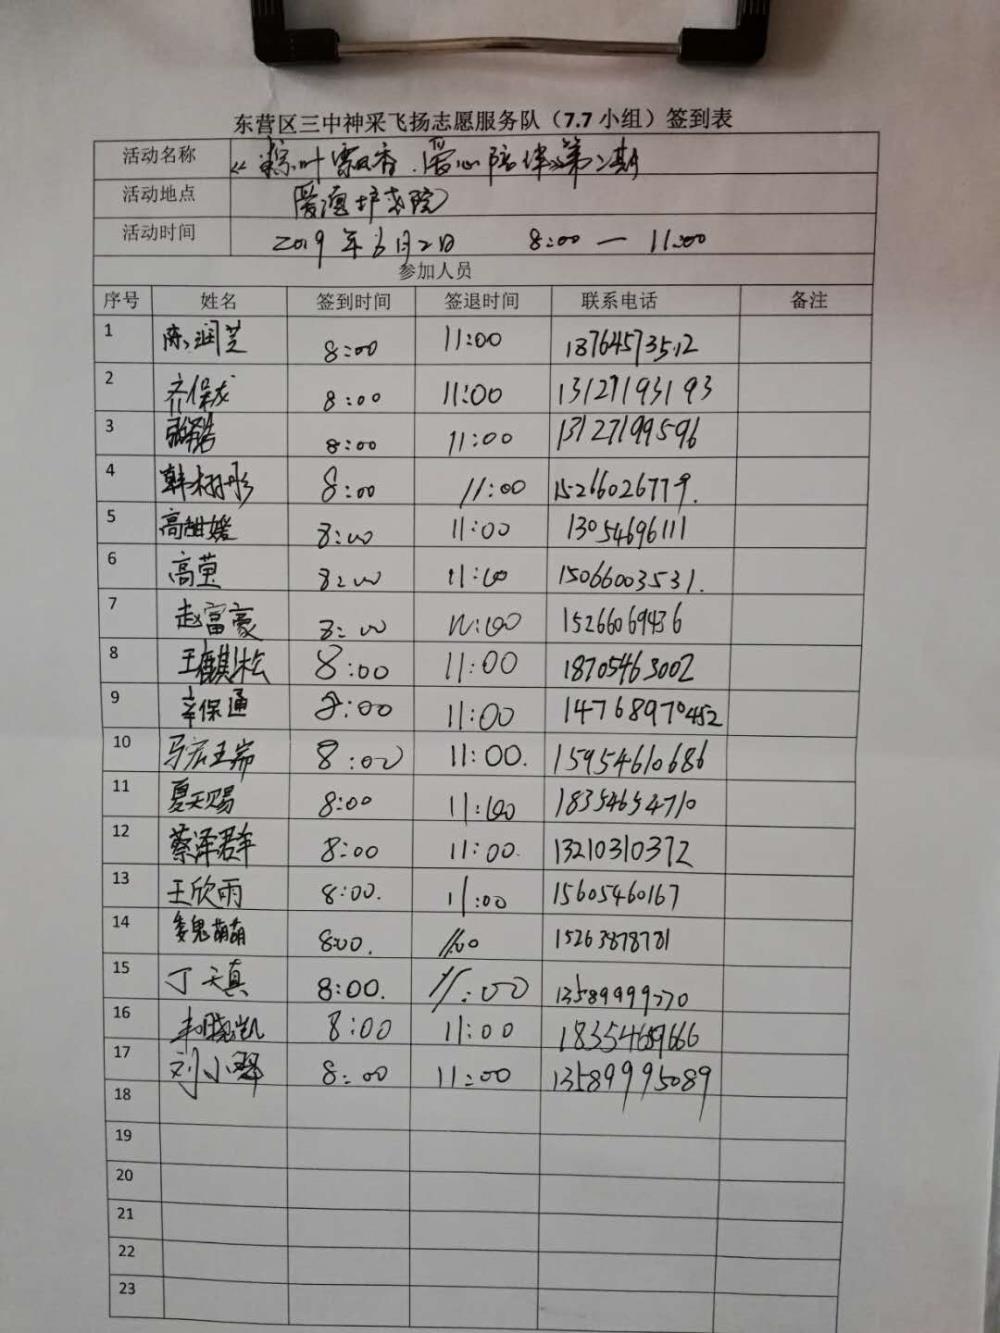 东营区三中神采飞扬志愿服务队（7.7 小组）签到表
活动名称 《粽叶飘香.爱心陪伴》第二期
活动地点 护老院
活动时间 2019年6月2日 8:00 — 11:00
参加人员
序号 姓名 签到时间 签退时间 联系电话 备注
1 陈润芝 8:00 11:00 18764573512
2 齐保龙 8:00 11:00 13127193193
3 8:00 11:00 13127199596
4 韩栩彤 8:00 11:00 15266026779.
5 高甜媛 8:00 11:00 13054696111
6 高萤 8:00 11:00 15066003531.
7 赵富豪 8:00 11:00 15266069436
8 王麒松 8:00 11:00 18705463002
9 辛保通 8:00 11:00 14768970452
10 8:00 11:00. 15954610686
11 夏天赐 8:00 11:00 18354654710
12 蔡泽群 8:00 11:00. 13210310372
13 王欣雨 8:00. 11:00 15605460167
14 魏萌萌 8:00. 11:00 15263878781
15 丁天真 8:00. 11:00 13589999770
16 8:00 11:00 18354689666
17 刘小 8:00 11:00 13589995089
18
19
20
21
22
23